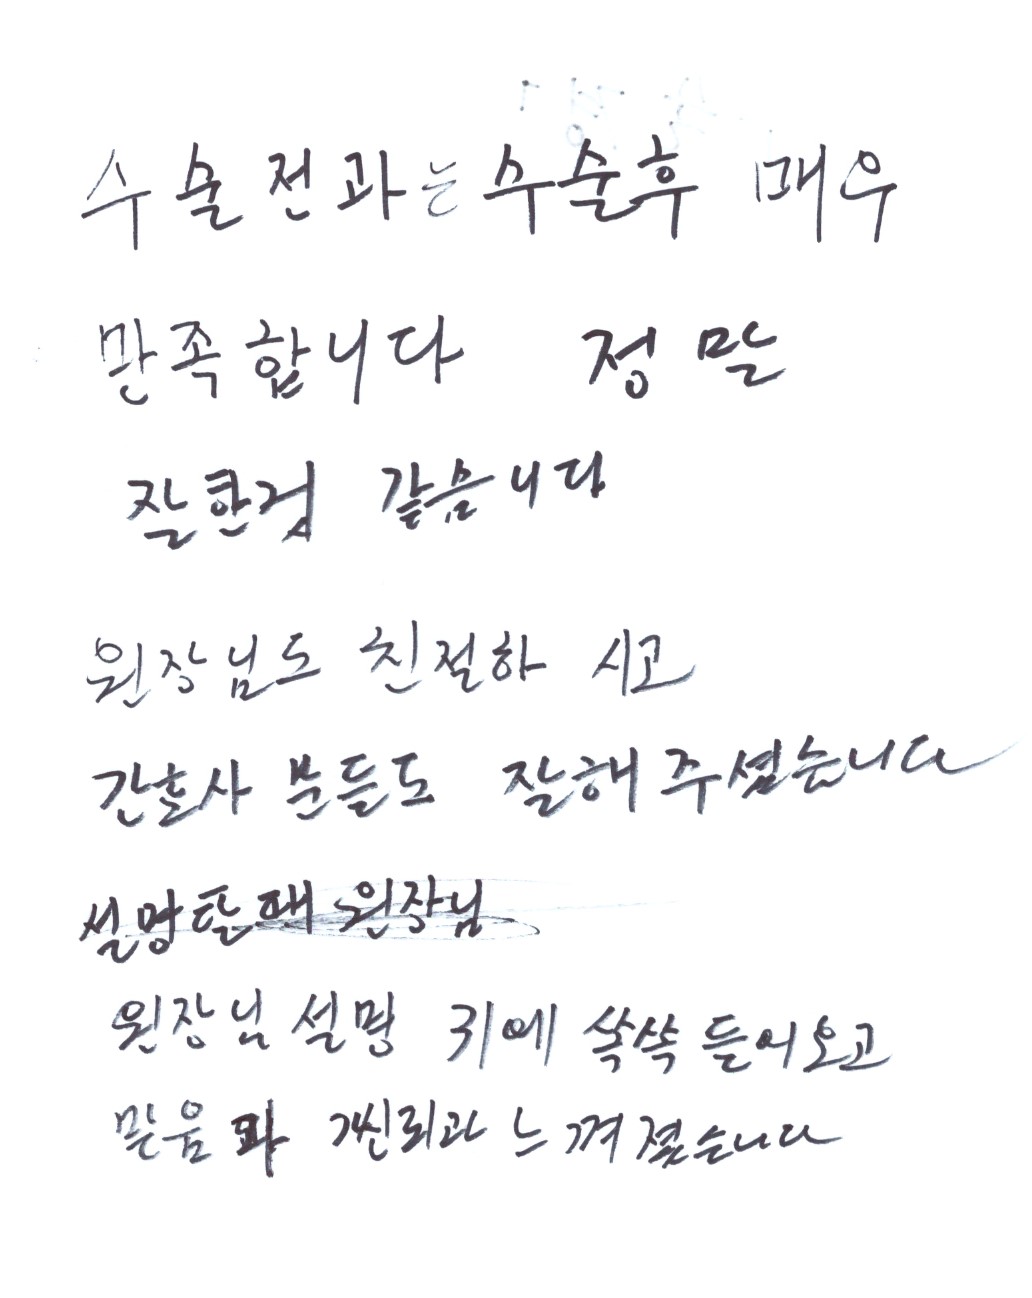 수술전과는 수술후 매우
만족합니다 정말
잘한것 같습니다
원장님도 친절하 시고
간호사 분들도 잘해 주셨습니다
설명할때 원장님
원장님 설명 귀에 쏙쏙 들어오고
믿음과 신뢰과 느껴졌습니다